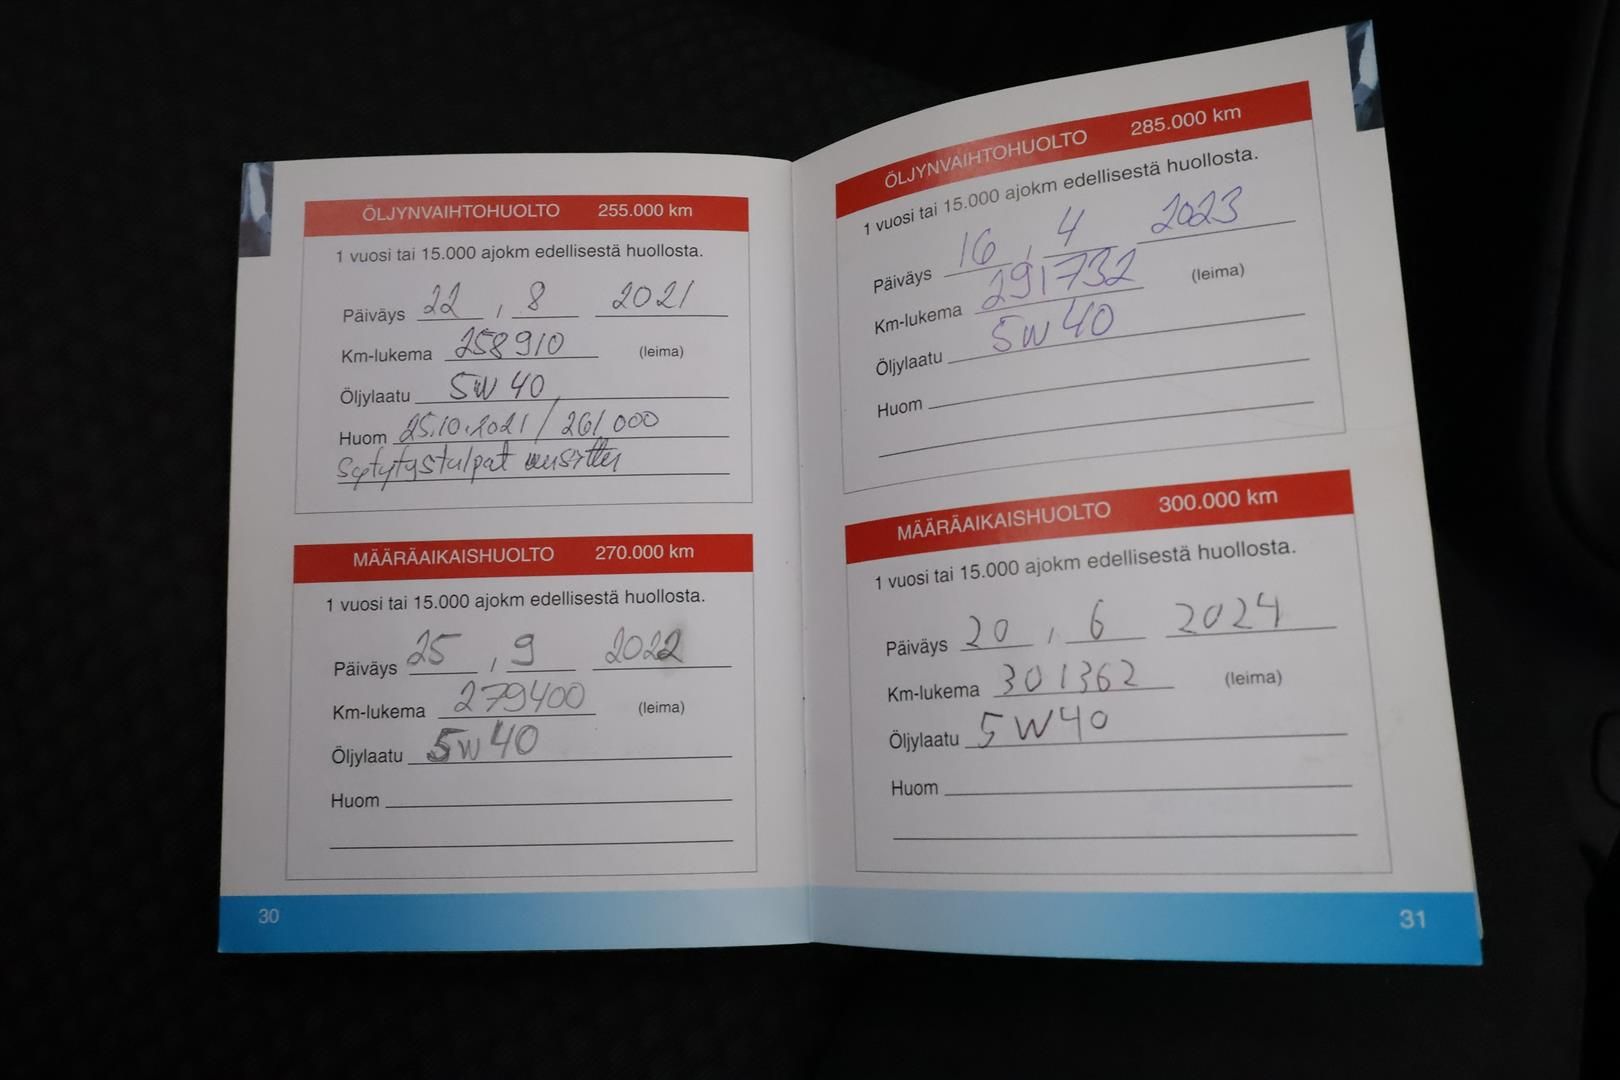 ÖLJYNVAIHTOHUOLTO 255.000 km
1 vuosi tai 15.000 ajokm edellisestä huollosta.
Päiväys 22 , 8 2021
Km-lukema 258910 (leima)
Öljylaatu 5W 40
Huom 25.10.2021 / 261 000
Sytytystulpat uusittu
MÄÄRÄAIKAISHUOLTO 270.000 km
1 vuosi tai 15.000 ajokm edellisestä huollosta.
Päiväys 25 , 9 2022
Km-lukema 279400 (leima)
Öljylaatu 5W 40
Huom
30
ÖLJYNVAIHTOHUOLTO 285.000 km
1 vuosi tai 15.000 ajokm edellisestä huollosta.
Päiväys 16 , 4 2023
Km-lukema 291732 (leima)
Öljylaatu 5W 40
Huom
MÄÄRÄAIKAISHUOLTO 300.000 km
1 vuosi tai 15.000 ajokm edellisestä huollosta.
Päiväys 20 , 6 2024
Km-lukema 301362 (leima)
Öljylaatu 5W40
Huom
31